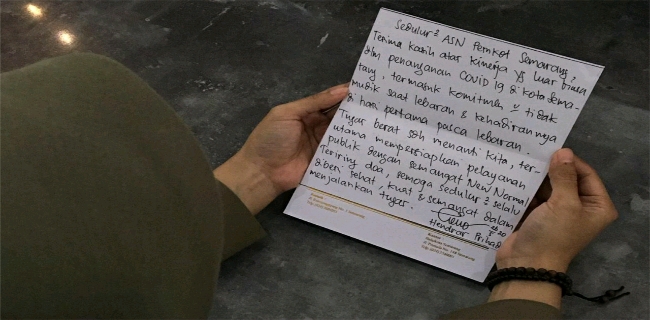 Sedulur² ASN Pemkot Semarang,
Terima kasih atas kinerja yg luar biasa
dlm penanganan COVID 19 di kota Sema-
rang, termasuk komitmen u/ tidak
mudik saat lebaran & kehadirannya
di hari pertama pasca lebaran.
Tugas berat sdh menanti kita, ter-
utama mempersiapkan pelayanan
publik dengan semangat New Normal
Teriring doa, semoga sedulur² selalu
diberi sehat, kuat & semangat dalam
menjalankan tugas.
Hendrar Prihadi